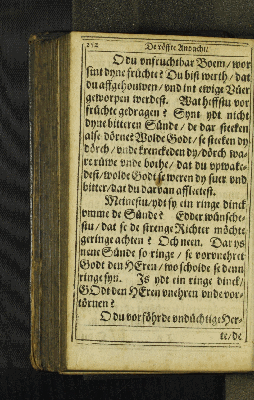 De söste Andacht.
O du vnfruchtbar Boem/ wor
sint dyne früchte? Du bist werth/ dat
du affgehouwen/ vnd int ewige Vüer
geworpen werdest. Wat heffstu vor
früchte gedragen? Synt ydt nicht
dyne bitteren Sünde/ de dar stecken
alse dörne? Wolde Godt/ se stecken dy
dörch/ vnde krenckeden dy/ dörch wa-
re rüwe vnde bothe/ dat du upwake-
dest/ wolde Godt se weren dy suer vnd
bitter/ dat du darvan afflietest.
Meinestu/ ydt sy ein ringe dinck
vmme de Sünde? Edder wünsche-
stu/ dat se de strenge Richter möchte
geringe achten? Och neen. Dar ys
nene Sünde so ringe/ se vorvnehret
Godt den HEren/ wo scholde se denn
ringe syn. Is ydt ein ringe dinck/
GOdt den HEren vnehren vnde vor-
törnen?
O du vorföhrde vndüchtige Her-
te/ de